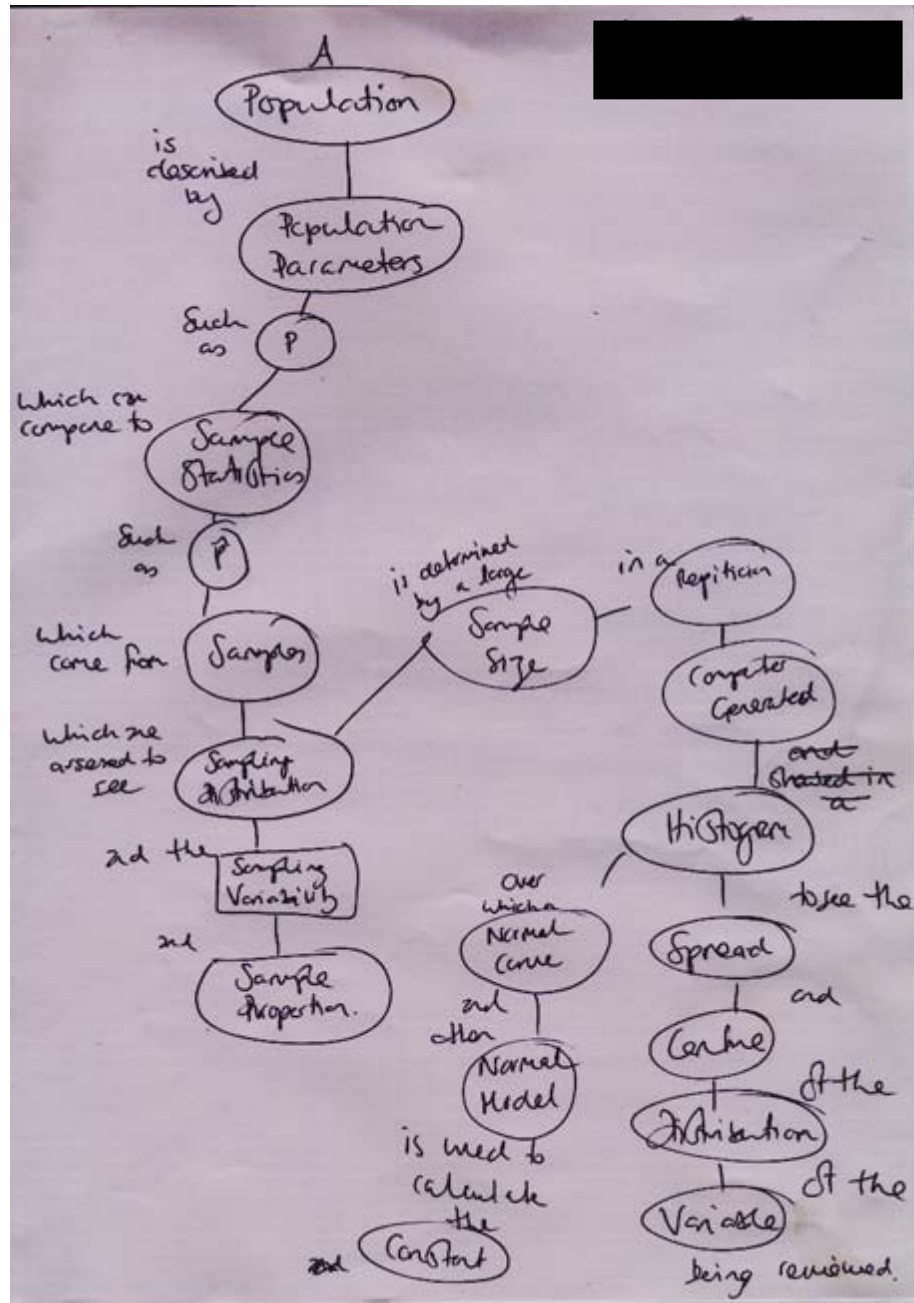 A
Population
is
described
by
Population
Parameters
Such
as
P
which can
compare to
Sample
Statistics
Such
as
P̂
which
come from
Samples
which are
assessed to
see
Sampling
Distribution
and the
Sampling
Variability
and
Sample
Proportion.
is determined
by a large
Sample
Size
in a
Repitician
Computer
Generated
and
shared in
a
Histogram
Over
which a
Normal
Curve
and
other
Normal
Model
is used to
calculate
the
and
Constant
to see the
Spread
and
Centre
of the
Distribution
of the
Variable
being reviewed.